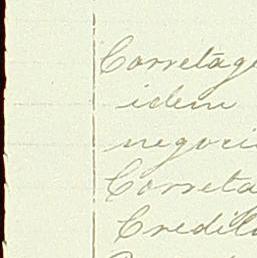 Corretage
idem
negocia
Correta
Credito